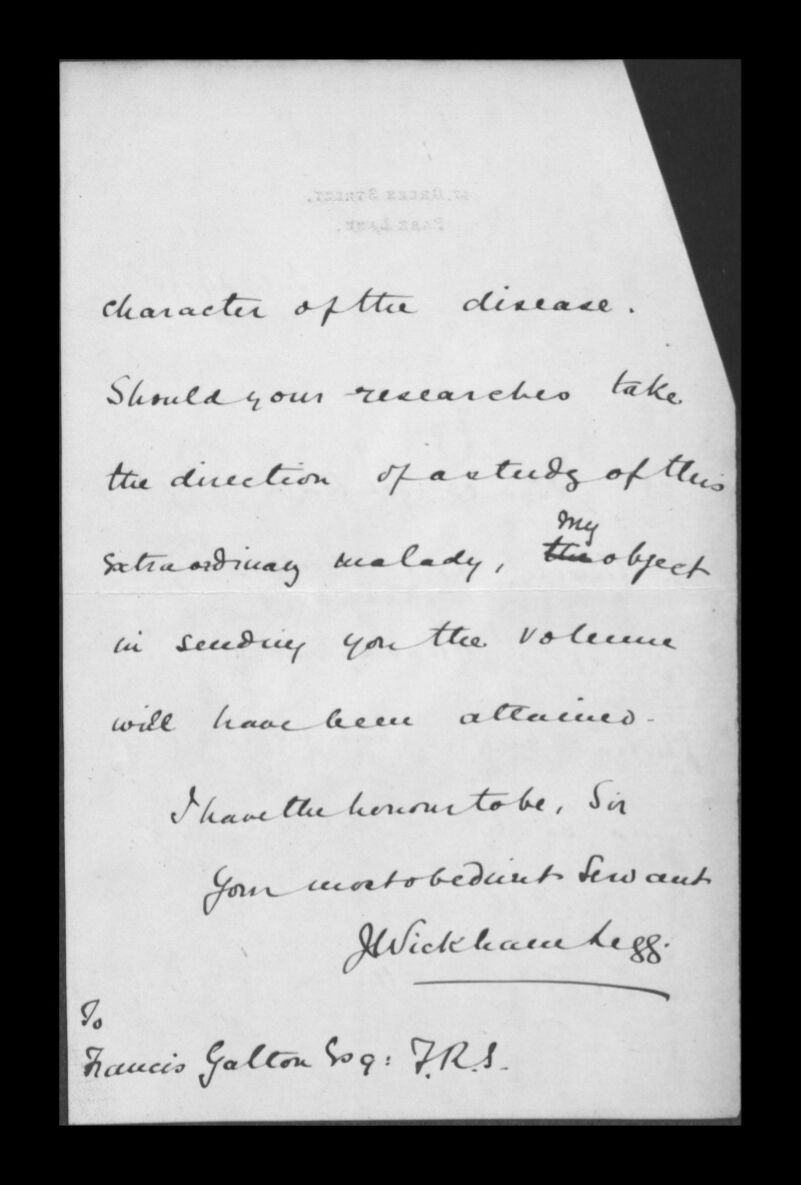 character of the disease.
Should your researches take
the direction of a study of this
extraordinary malady, my
the object
in sending you the volume
will have been attained.
I have the honour to be, Sir
Your most obedient Servant
J Wickham Legg.
To
Francis Galton Esq: F.R.S.